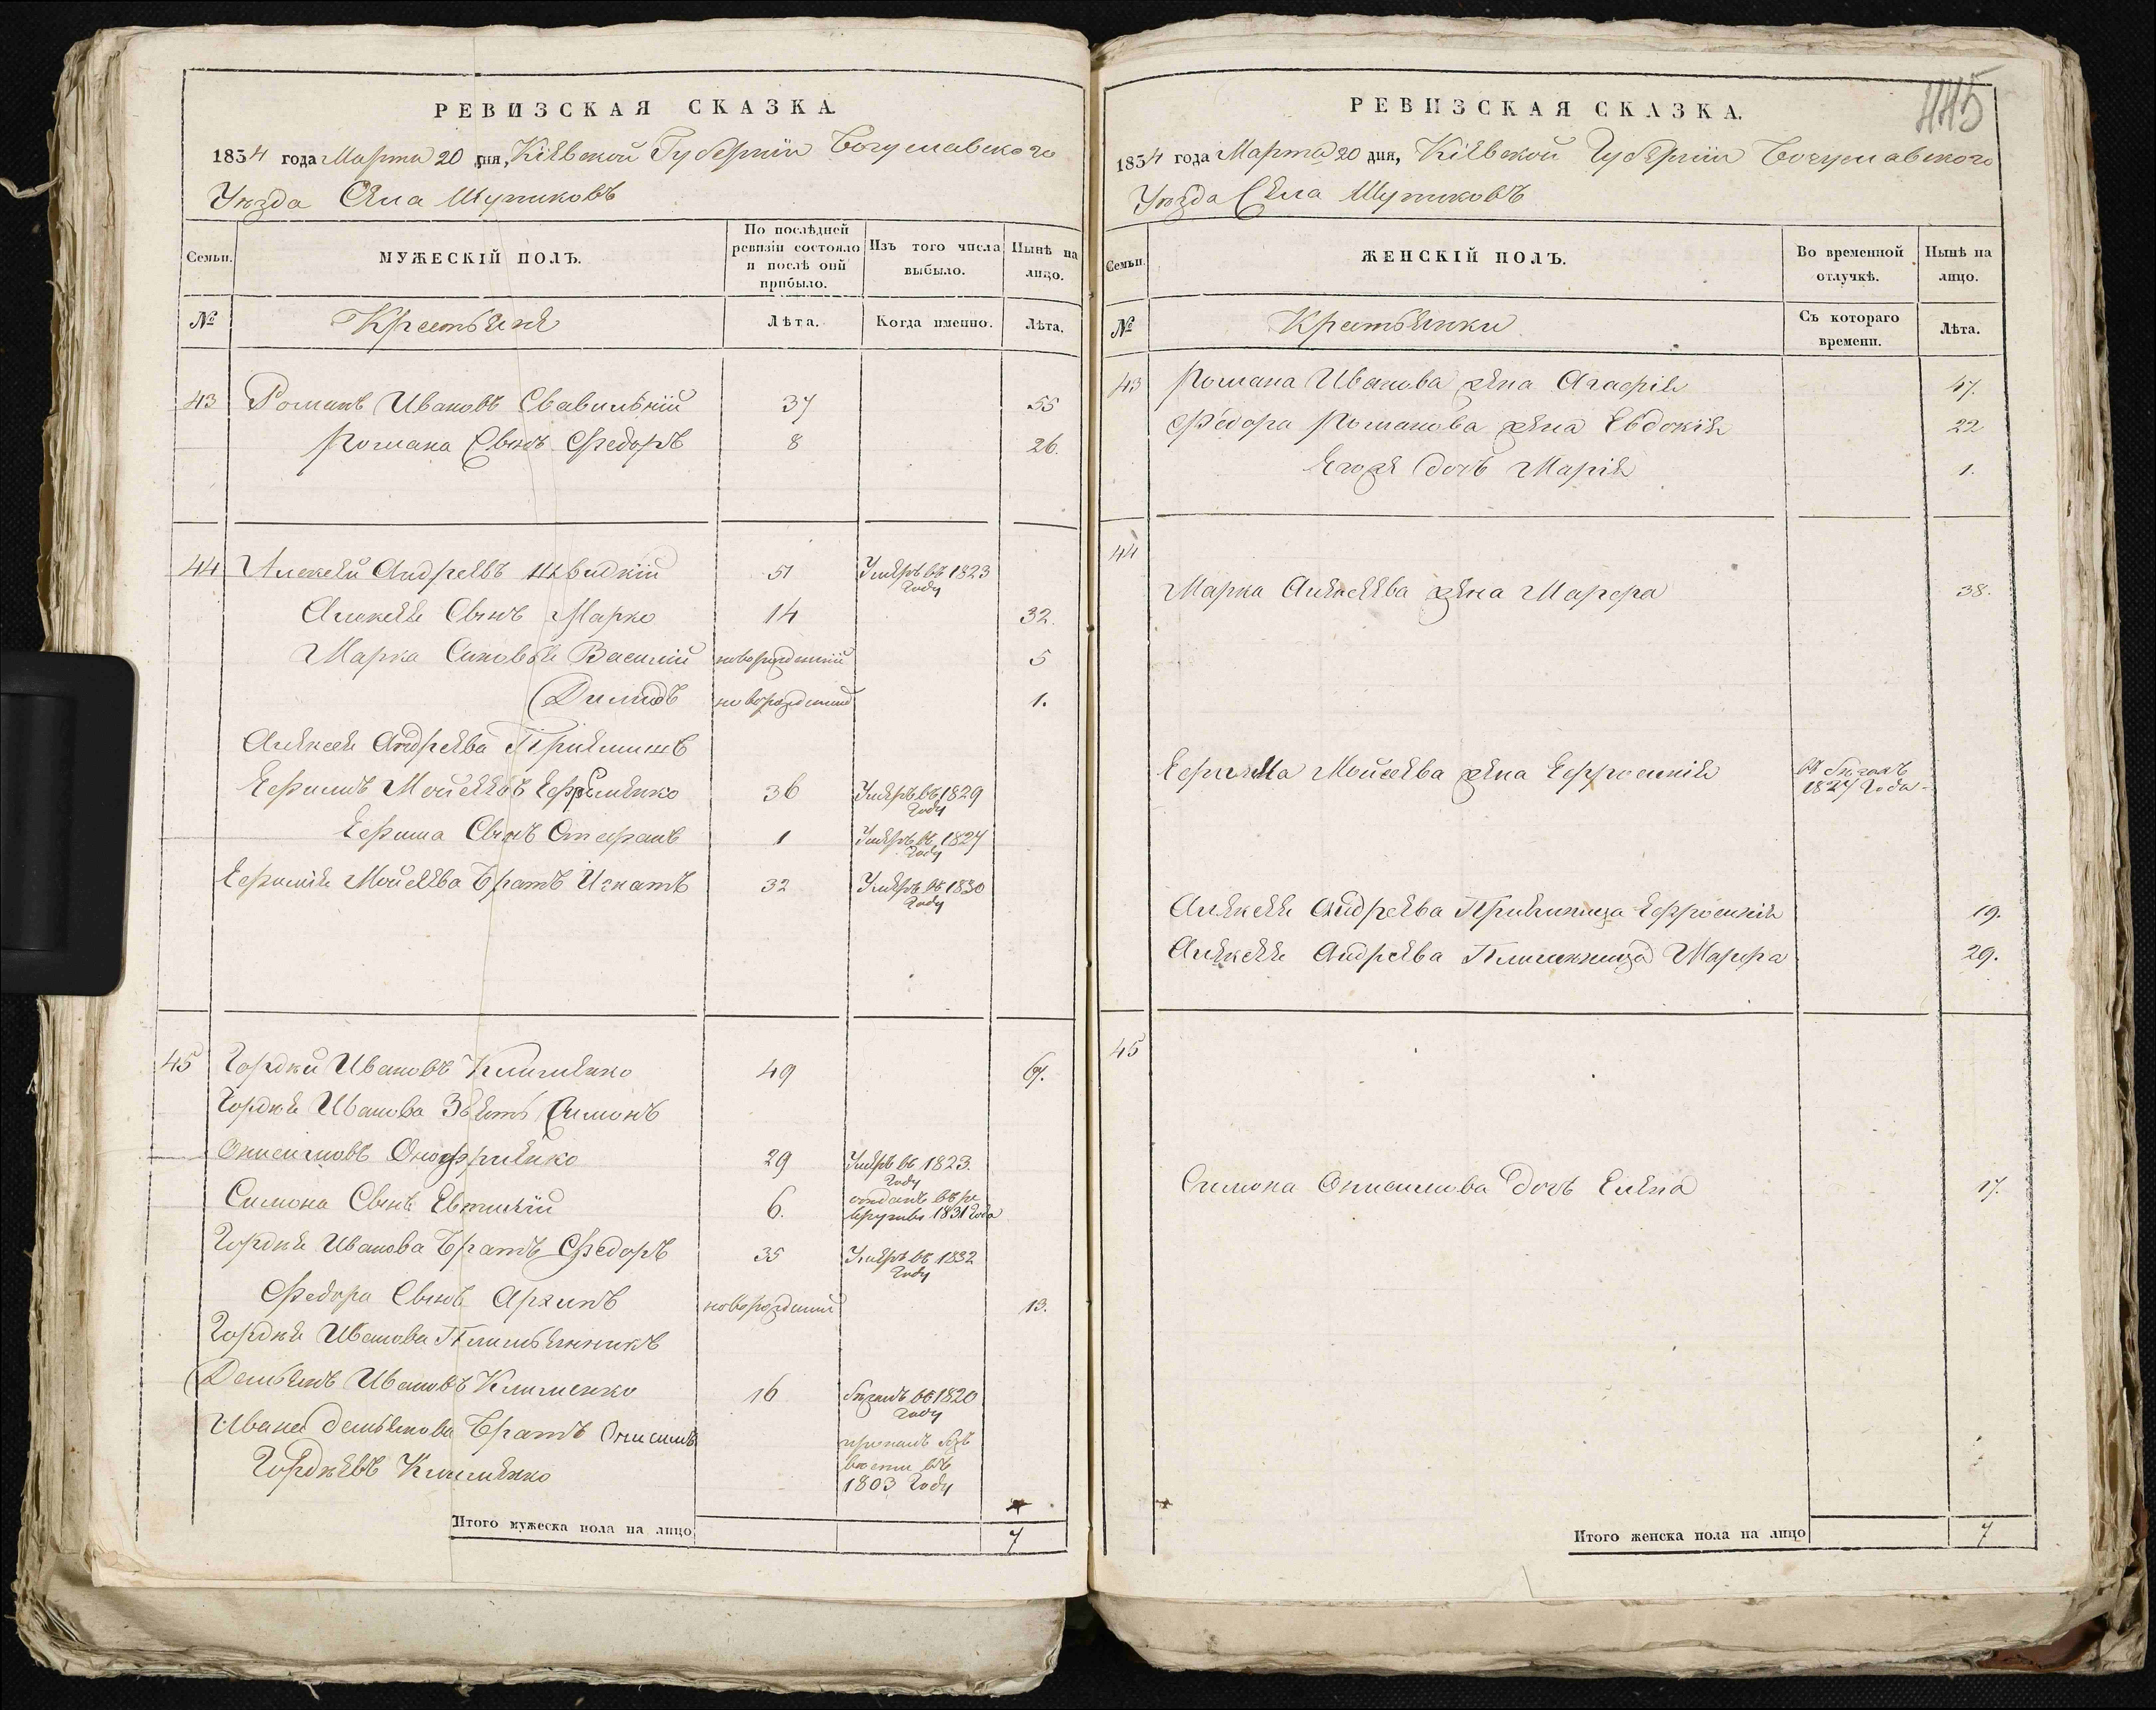 РЕВИЗСКАЯ СКАЗКА
1834 года Марта 20 дня, Кіевской Губерніи Богуславского
Уѣзда Села Шупиковъ
Семьи.
МУЖЕСКІЙ ПОЛЪ.
По послѣдней ревизіи состояло и послѣ оной прибыло.
Изъ того числа выбыло.
Нынѣ на лицо.
№
Крестьяне
Лѣта.
Когда именно.
Лѣта.
43 Романъ Ивановъ Свавильній 37 55
Романа Сынъ Федоръ 8 26.
44 Алексей Андреевъ Швидкій 51 Умеръ въ 1823 Году
Алексея Сынъ Марко 14 32.
Марка Сыновья Василий новорожденній 5
Демидъ новорожденній 1.
Алексея Андреева Пріемышъ
Ефимъ Мойсеевъ Ефименко 36 Умеръ въ 1829 Году
Ефима Сынъ Стефанъ 1 Умеръ въ 1827 Году
Ефимія Мойсеева Братъ Игнатъ 32 Умеръ въ 1830 Году
45 Гордѣй Ивановъ Клименко 49 67.
Гордѣя Иванова Зять Симонъ
Онисимовъ Оноффрıенко 29 Умеръ въ 1823. Году
Симона Сынъ Евтихій 6. отданъ въ рекруты 1831 Года
Гордѣя Иванова Братъ Федоръ 35 Умеръ въ 1832 Году
Федора Сынъ Архипъ новорожденній 13.
Гордѣя Иванова Племьянникъ
Демьянъ Ивановъ Клименко 16 бѣжалъ въ 1820 Году
Ивана Демьянова Братъ Онисимъ
Гордѣевъ Клименко пропалъ безъ вести въ 1803 Году
Итого мужеска пола на лицо 7
445
РЕВИЗСКАЯ СКАЗКА.
1834 года Марта 20 дня, Кіевской Губерніи Богуславского
Уѣзда Села Шупиковъ
Семьи.
ЖЕНСКІЙ ПОЛЪ.
Во временной отлучкѣ.
Нынѣ на лицо.
№
Крестьянки
Съ котораго времени.
Лѣта.
43 Романа Иванова жена Агафія 47.
Федора Романова жена Евдокія 22
Егоже дочь Марія 1.
44
Марка Алексеева жена Марфа 38.
Ефима Мойсеева жена Ефросинія въ бѣгахъ 1827 Года
Алексея Андреева Пріемница Ефросинія 19.
Алексея Андреева Племянница Марфа 29.
45
Симона Онисимова дочь Елена 17.
Итого женска пола на лицо 7